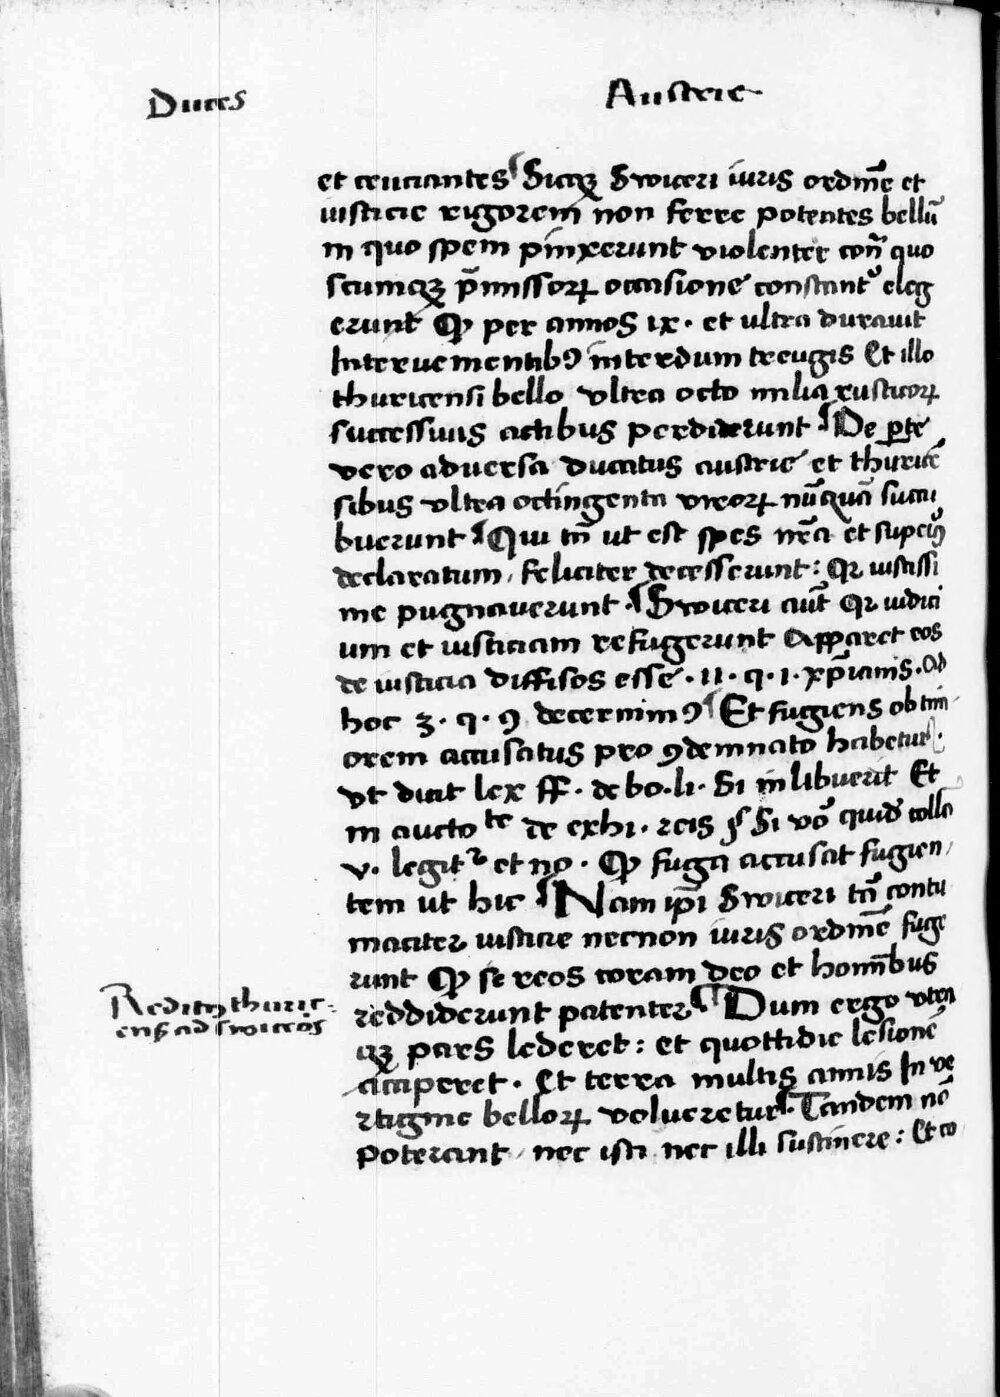 Duces Austrie
et cruciantes Sicqʒ Swiceri iuris ordinē et
iusticie rigorem non ferre potentes bellū
in quo spem pinxerunt violenter con̄ quo
scumqʒ p̄missoꝝ occasione constant᷑ eleg
erunt Qͥ per annos ix. et ultra durauit
Interuementibꝰ interdum treugis Et illo
thuricensi bello vltra octo milia rusticoꝝ
successiuis actibus perdiderunt De ꝑte
vero aduersa ducatus austrie et thuricē
sibus vltra octingenta viroꝝ nūquā sucu
buerunt Qui tn̄ ut est spes nr̄a et supeiꝰ
declaratum, feliciter decesserunt: Qꝛ iustissi
me pugnauerunt. Swiceri aūt Qꝛ iudici
um et iusticiam refugerunt Apparet eos
de iusticia diffisos esse. 11. q. 1. xp̄ianis. Ad
hoc 3. q. 9 decernimꝰ Et fugiens ob tim
orem accusatus pro ꝯdemnato habetur.
vt dicit lex ff. de bo. li. Si in libuerit Et
in aucto te de exhi. reis § Si vō quid colla
v. legit᷑ et no. Qͥ fuga accusat fugien
tem ut hic Nam ip̄i Swiceri tā contu
maciter iusticie necnon iuris ordinē fuge
runt Qͥ se reos coram deo et hoīnbus
reddiderunt patenter Dum ergo vtra
qʒ pars lederet: et quottidie lesionē
acciperet. Et terra multis annis In ve
rtigine belloꝝ volueretur. Tandem nō
poterant, nec isti nec illi sustinere: Et co
Reditꝰ thuric
ensꝫ ad swiceros